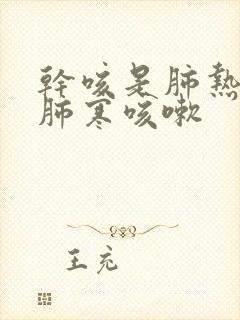 幹咳是肺熱
肺寒咳嗽
王充